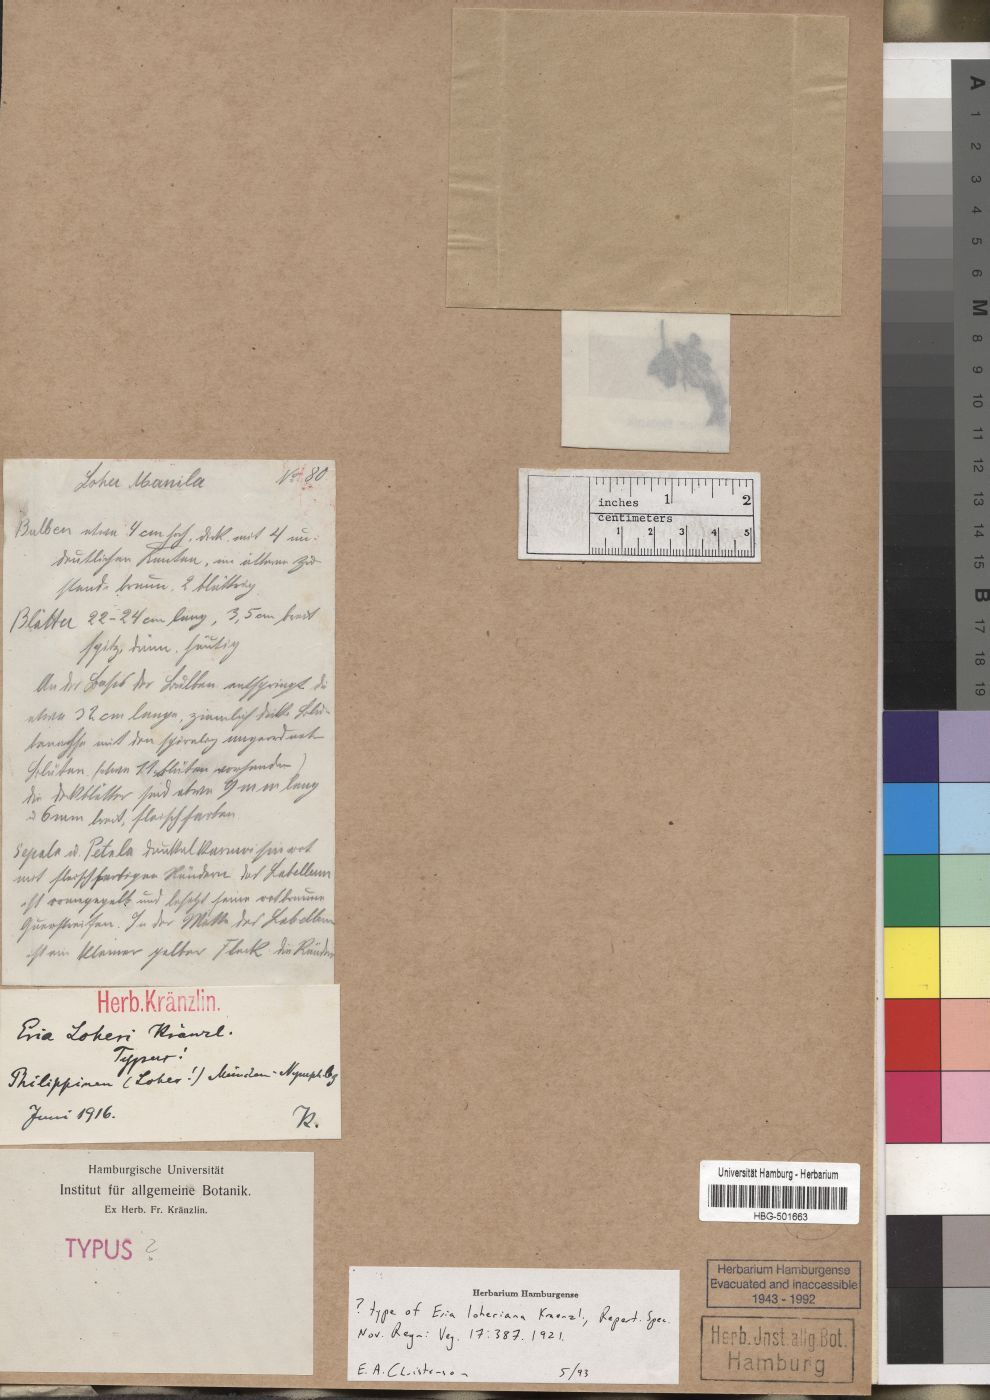 Loher Manila No 80
Bulben etwa 4 cm hoch, dick, mit 4 un-
deutlichen Kanten, im älteren Zu-
stande braun. 2 blättrig
Blätter 22-24 cm lang, 3,5 cm breit
spitz, dünn, häutig
An der Basis der Bulben entspringt die
etwa 32 cm lange, ziemlich dicke Blü-
tenachse mit den spiralig angeordneten
Blüten (etwa Blüten vorhanden)
die Deckblätter sind etwa 9 mm lang
u 6mm breit, fleischfarben
Sepala u. Petala dunkel karmoisinrot
mit fleischfarbigen Rändern das Labellum
ist orangegelb und besetzt seine rotbraune
Querstreifen. In der Mitte des Labellum
ist ein kleiner gelber Fleck. die Ränder
Herb.Kränzlin.
Eria Loheri Kränzl.
Typus!
Philippinen (Loher!) München-Nymphbg
Juni 1916. K.
Hamburgische Universität
Institut für allgemeine Botanik.
Ex Herb. Fr. Kränzlin.
TYPUS ?
inches 1 2
centimeters
1 2 3 4 5
Universität Hamburg - Herbarium
HBG-501663
Herbarium Hamburgense
Evacuated and inaccessible
1943 - 1992
Herb. Inst. allg. Bot.
Hamburg
Herbarium Hamburgense
? type of Eria loheriana Kraenzl., Repert. Spec.
Nov. Regni Veg. 17: 387. 1921.
E.A. Christenson 5/93
A
1
2
3
4
5
6
M
8
9
10
11
12
13
14
15
B
17
18
19